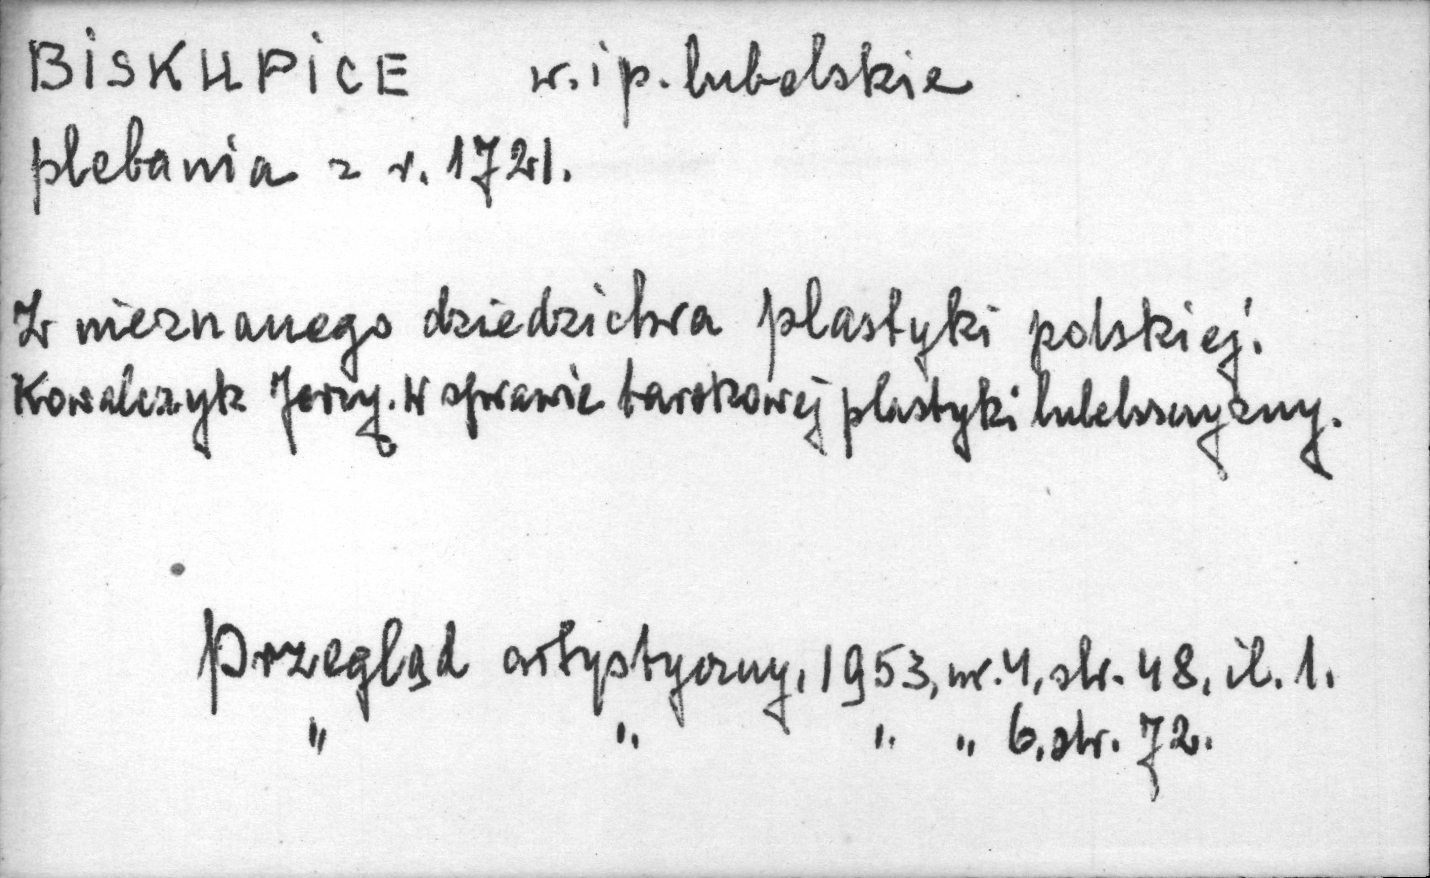 BISKUPICE w. i p. lubelskie
plebania z r. 1721.
Z nieznanego dziedzictwa plastyki polskiej.
Kowalczyk Jerzy. W sprawie barokowej plastyki lubelszczyzny.
Przegląd artystyczny, 1953, nr. 4, str. 48, il. 1.
" " " " 6, str. 72.